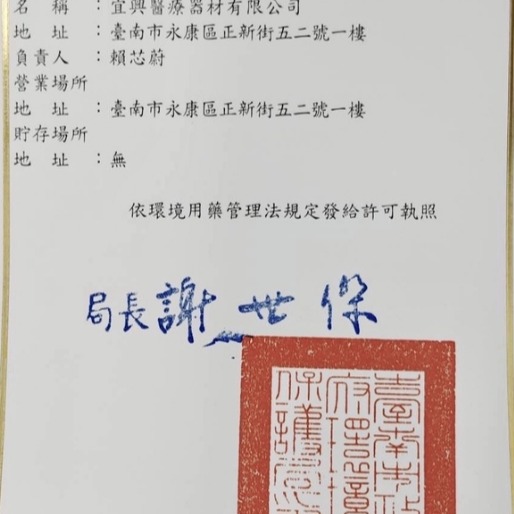 名稱:宜興醫療器材有限公司
地址:臺南市永康區正新街五二號一樓
負責人:賴芯蔚
營業場所
地址:臺南市永康區正新街五二號一樓
貯存場所
地址:無
依環境用藥管理法規定發給許可執照
局長謝世傑
臺南市政
府環境
保護局